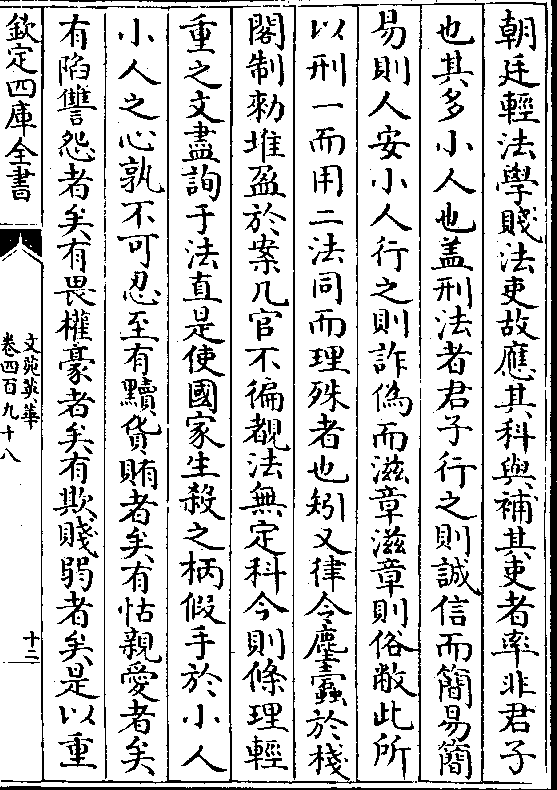 朝廷輕法學賤法吏故應其科與補其吏者率非君子
也其多小人也盖刑法者君子行之則誠信而簡易簡
易則人安小人行之則詐偽而滋章滋章則俗敝此所
以刑一而用二法同而理殊者也矧又律令塵蠹於棧
閣制勑堆盈於案几官不徧覩法無定科今則條理輕
重之文盡詢于法直是使國家生殺之柄假手於小人
小人之心孰不可忍至有黷貨賄者矣有怙親愛者矣
有陷讐怨者矣有畏權豪者矣有欺賤弱者矣是以重
欽定四庫全書
文苑英華
卷四百九十八
十二